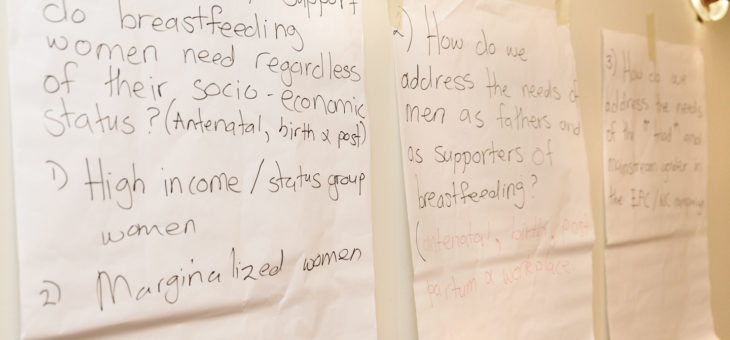 support
do breastfeeding
women need regardless
of their socio-economic
status? (Antenatal, birth & post)
1) High income / status group
women
2) Marginalized women
2) How do we
address the needs of
men as fathers and
as supporters of
breastfeeding?
(antenatal, birth, post
partum & workplace
3) How do we
address the needs
of the "
mainstream
the